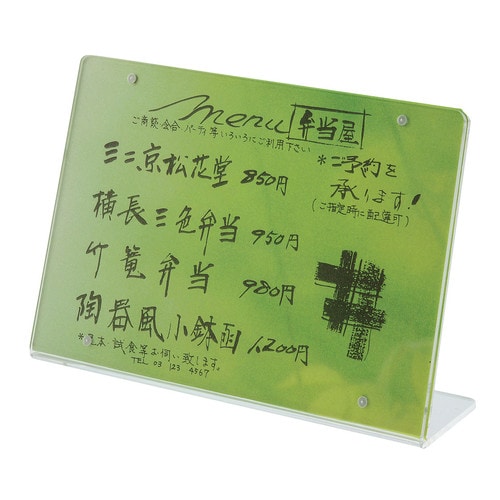 menu 弁当屋
ご商談・会合・パーティ等いろいろにご利用下さい
ミニ京松花堂 850円
横長三色弁当 950円
竹篭弁当 980円
陶器風小鉢 1,200円
*見本、試食等お伺い致します。
TEL 03 123 4567
*ご予約を
承ります!
(ご指定時に配達可)